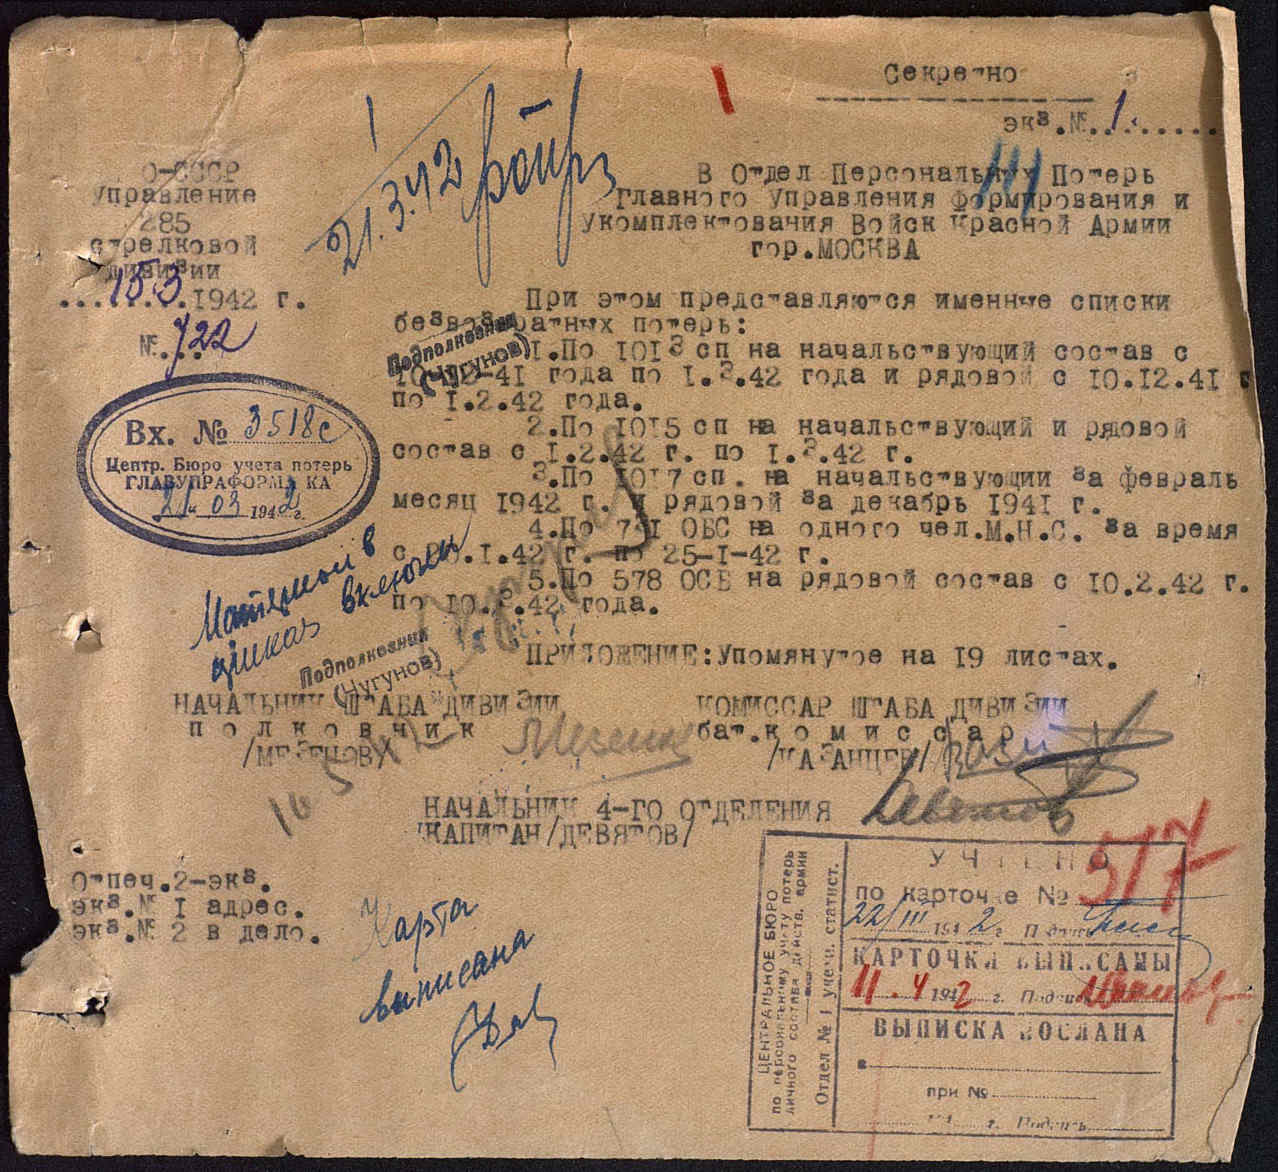 Секретно
экз.№ 1.
О-СССР
Управление
285
стрелковой
дивизии
15.3.1942 г.
№ 722
21.3.42
В Отдел Персональных Потерь
Главного Управления Формирования и
Укомплектования Войск Красной Армии
гор.МОСКВА
При этом представляются именные списки
безвозвратных потерь:
1.По 1013 сп на начальствующий состав с
10.12-41 года по 1.3.42 года и рядовой с 10.12.41 г
по 1.2.42 года.
2.По 1015 сп на начальствующий и рядовой
состав с 1.2.42 г. по 1.3.42 г.
3.По 1017 сп. на начальствующии за февраль
месяц 1942 г. и рядовой за декабрь 1941 г.
4.По 791 ОБС на одного чел.М.Н.С. за время
с .1.42 г. по 25-1-42 г.
5.По 578 ОСБ на рядовой состав с 10.2.42 г.
по 10.3.42 года.
ПРИЛОЖЕНИЕ:Упомянутое на 19 листах.
Подполковник
(Чугунов)
Вх. № 3518с
Центр. Бюро учета потерь
ГЛАВУПРАФОРМА КА
21 03 1942 г.
Материал в
приказ включен
Подполковник
(Чугунов)
НАЧАЛЬНИК ШТАБА ДИВИЗИИ
полковник
/МЕЗЕНОВ/
КОМИССАР ШТАБА ДИВИЗИИ
бат.комиссар
/КАЗАНЦЕВ/
НАЧАЛЬНИК 4-ГО ОТДЕЛЕНИЯ
/КАПИТАН/ДЕВЯТОВ/
Отпеч.2-экз.
экз.№ 1 адрес.
экз.№ 2 в дело.
Карта
выписана
ЦЕНТРАЛЬНОЕ БЮРО
по персональному учету потерь
личного состава действ. армии
Отдел № 1 учетн. статист.
УЧТЕНО
по карточке № 517
22/III 1942г Подпись
КАРТОЧКА ВЫПИСАНЫ
11.4 1942 г. Подпись
ВЫПИСКА ПОСЛАНА
в
при №
194 г. Подпись